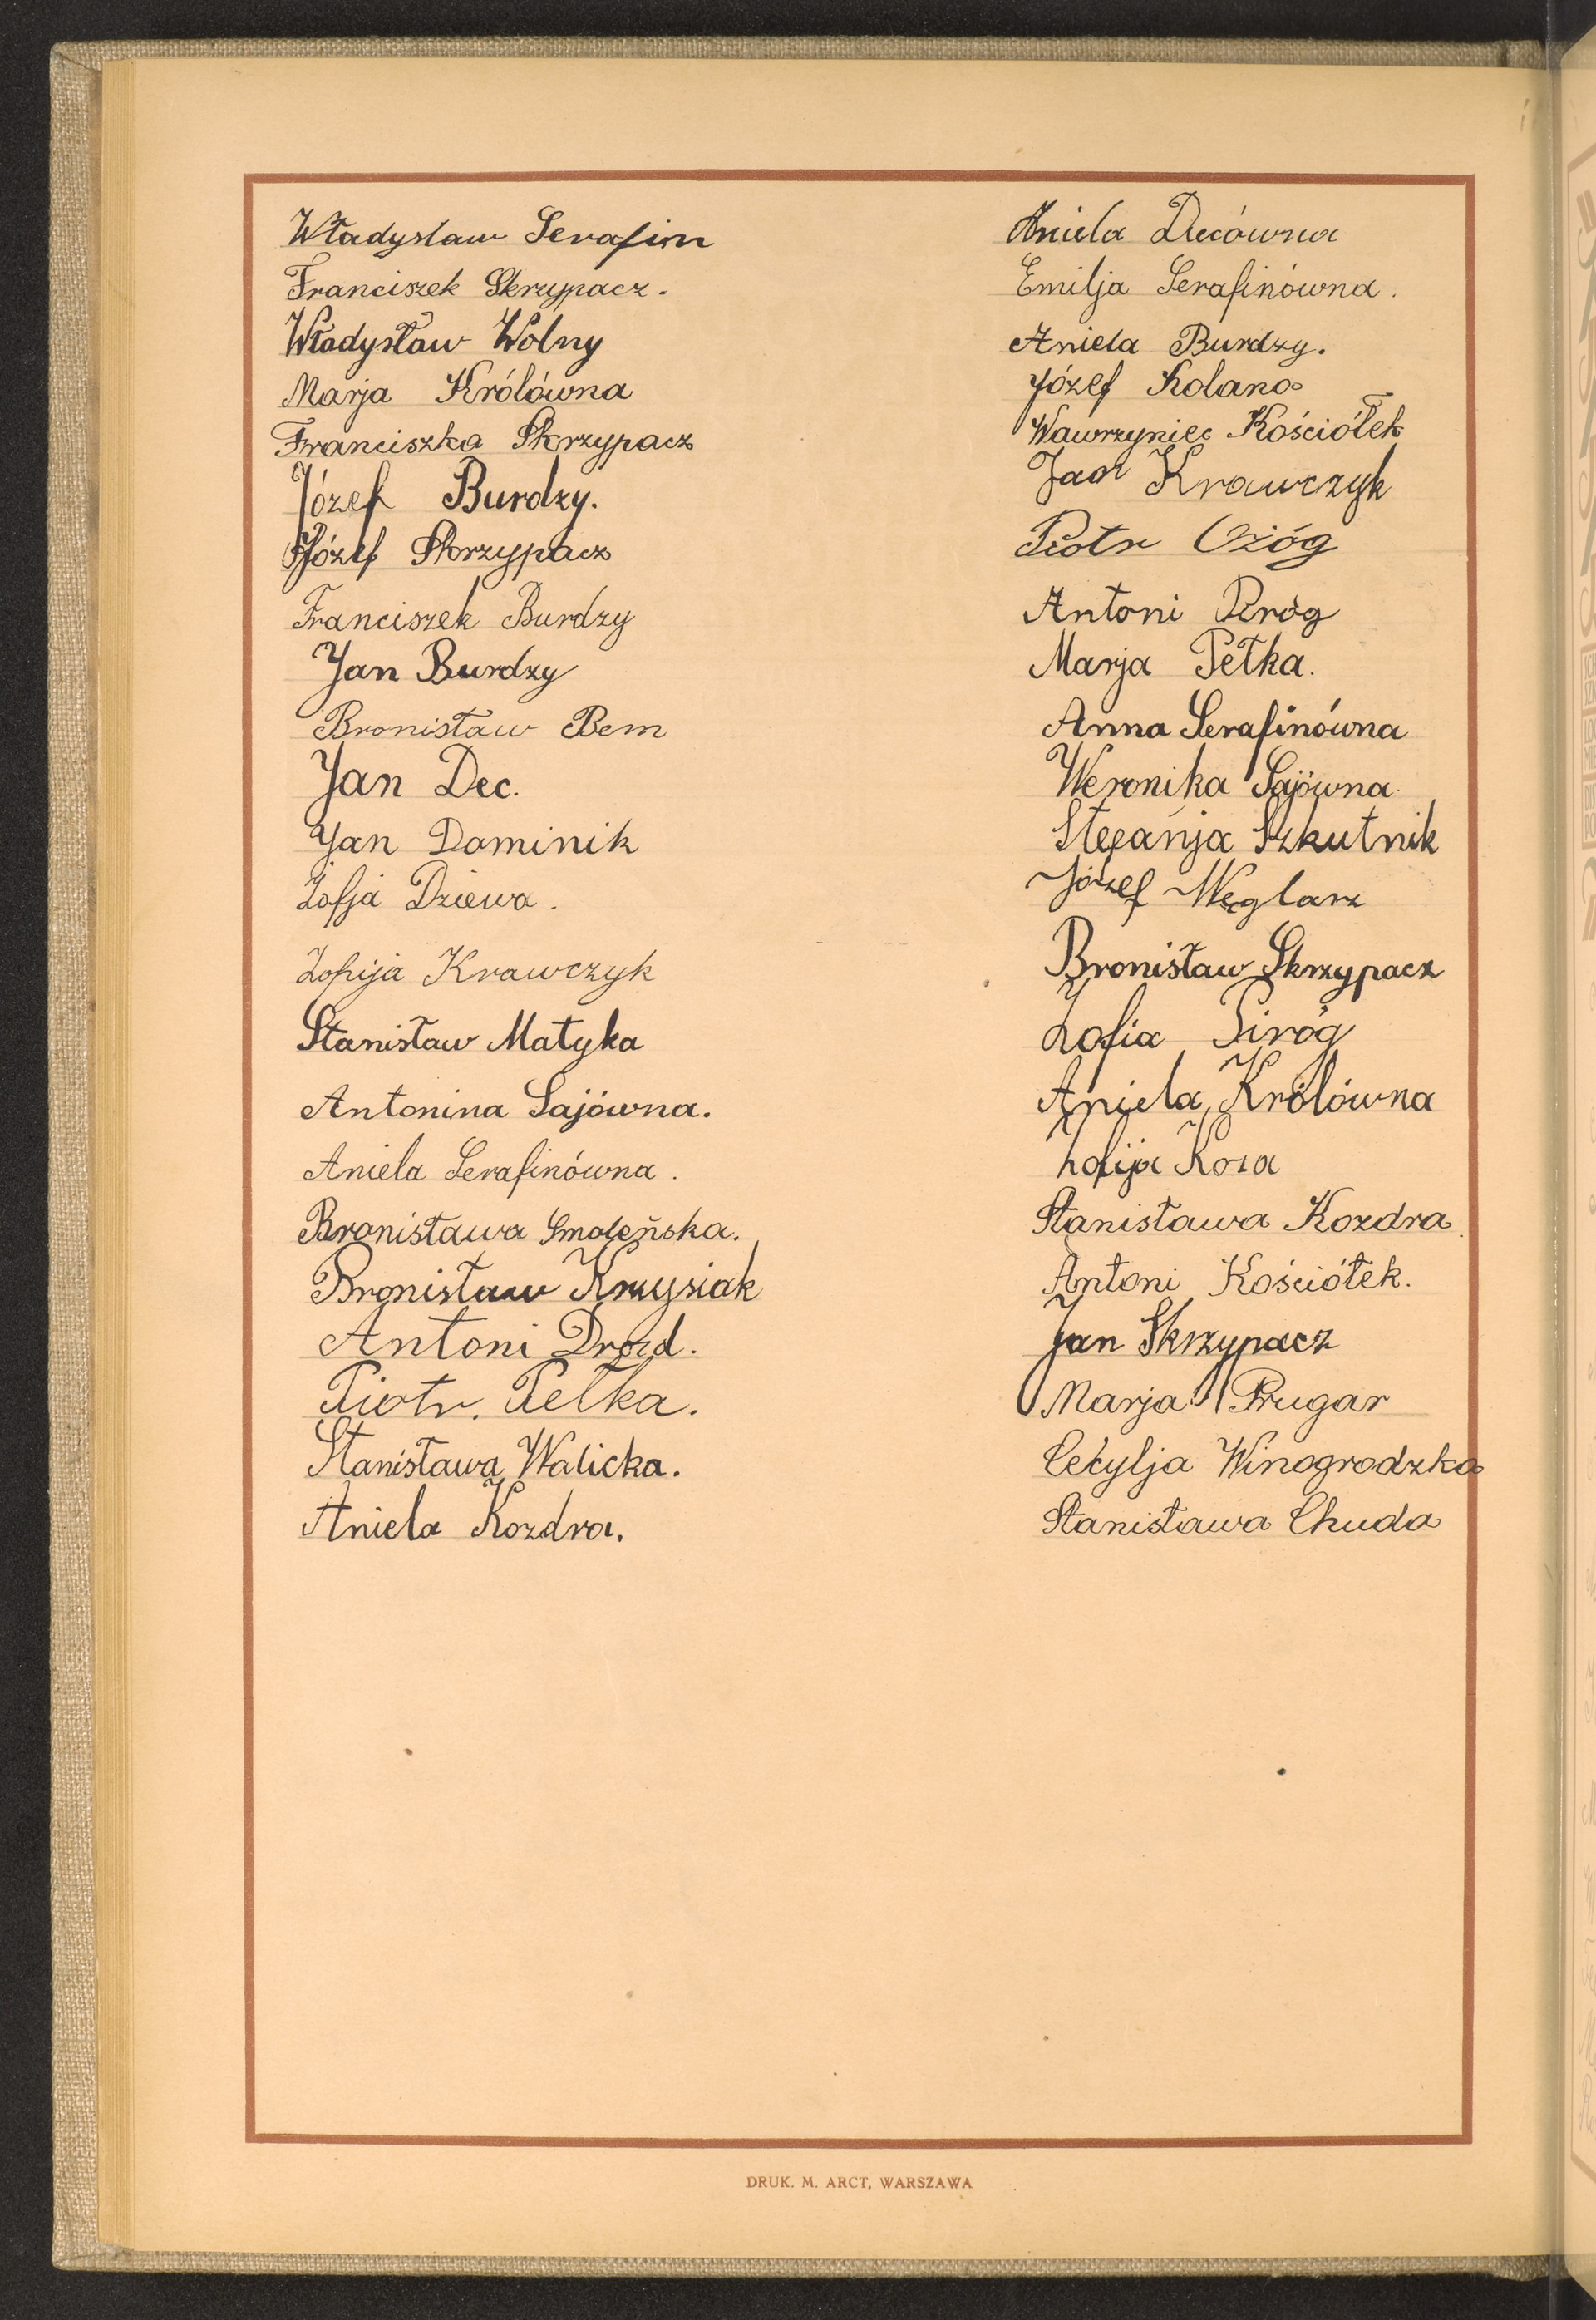 Władysław Serafin
Franciszek Skrzypacz.
Władysław Wolny
Marja Królówna
Franciszka Skrzypacz
Józef Burdzy.
Józef Skrzypacz
Franciszek Burdzy
Jan Burdzy
Bronisław Bem
Jan Dec.
Jan Dominik
Zofja Dziewa.
Zofija Krawczyk
Stanisław Matyka
Antonina Sajówna.
Aniela Serafinówna.
Bronisława Smoleńska.
Bronisław Krzysiak
Antoni Drozd.
Piotr. Pełka.
Stanisława Walicka.
Aniela Kozdra.
Aniela Decówna
Emilja Serafinówna.
Aniela Burdzy.
Józef Kolano
Wawrzyniec Kościółek
Jan Krawczyk
Piotr Ożóg
Antoni
Marja Pełka.
Anna Serafinówna
Weronika Sajówna.
Stefanja Szkutnik
Józef Węglarz
Bronisław Skrzypacz
Zofia Piróg
Aniela Królówna
Zofija Koza
Stanisława Kozdra.
Antoni Kościółek.
Jan Skrzypacz
Marja Prugar
Cecylja Winogrodzka
Stanisława Chuda
DRUK. M. ARCT, WARSZAWA